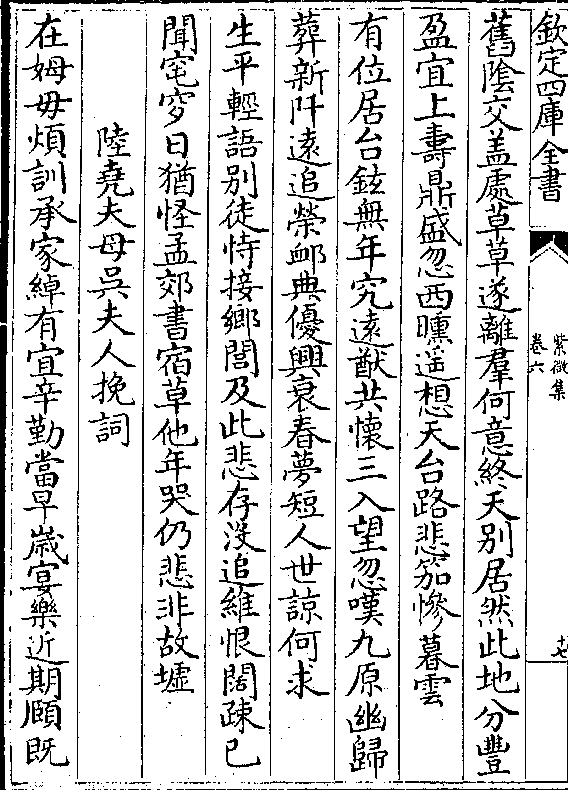 欽定四庫全書
紫微集
卷六
十七
舊陰交盖處草草遂離羣何意終天别居然此地分豐
盈宜上壽鼎盛忽西曛遥想天台路悲笳慘暮雲
有位居台鉉無年究遠猷共懷三入望忽嘆九原幽歸
葬新阡遠追榮卹典優興衰春夢短人世諒何求
生平輕語别徒恃接鄉閭及此悲存没追維恨闊疎已
聞窀穸日猶怪孟郊書宿草他年哭仍悲非故墟
陸堯夫母吳夫人挽詞
在姆毋煩訓承家綽有宜辛勤當早歳宴樂近期頤既